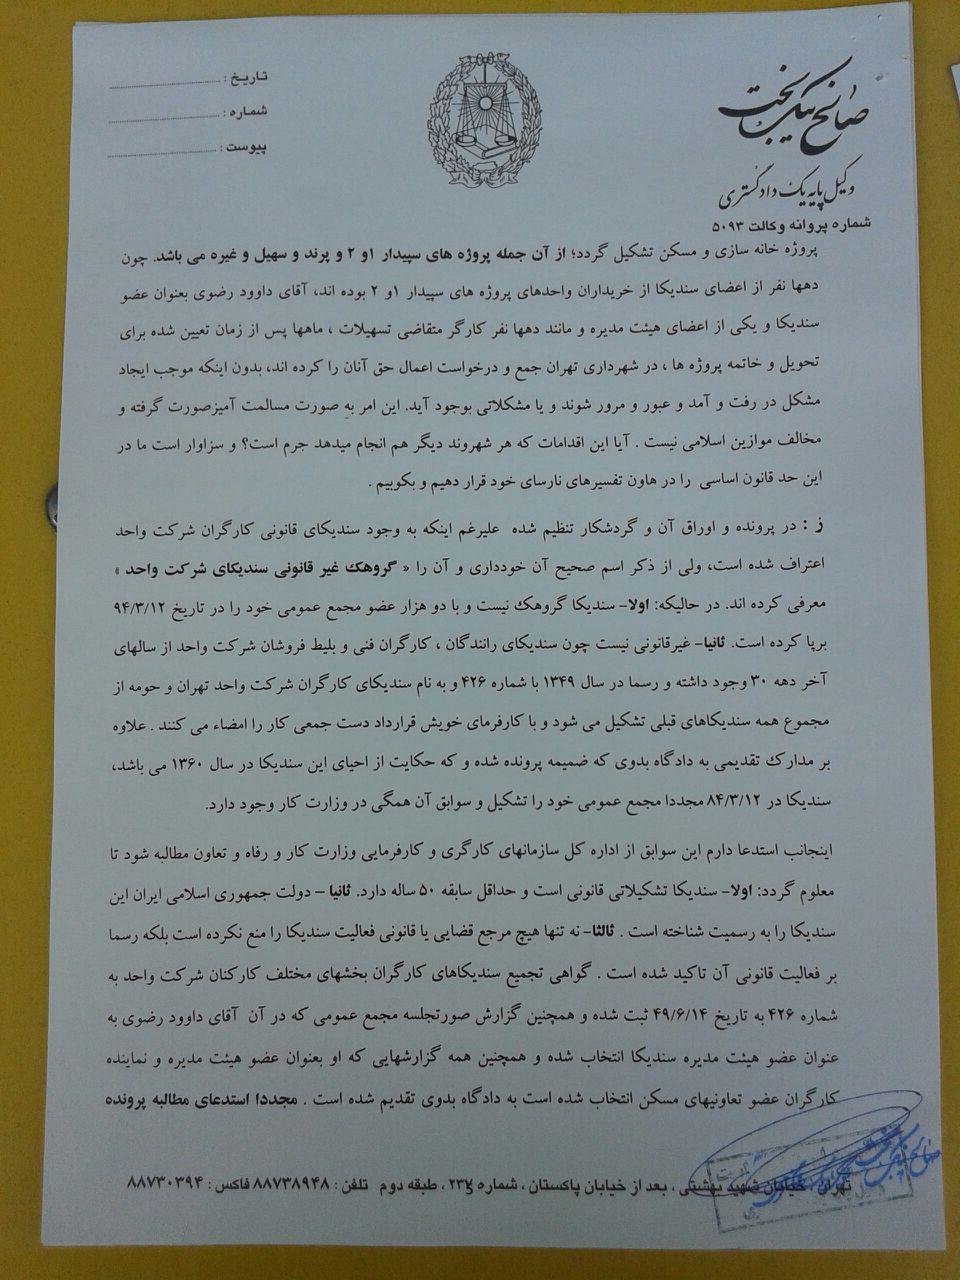 صالح نیکبخت
وکیل پایه یک دادگستری
شماره پروانه وکالت ۵۰۹۳
تاریخ :
شماره :
پیوست :
پروژه خانه سازی و مسکن تشکیل گردد؛ از آن جمله پروژه های سپیدار ۱و ۲ و پرند و سهیل و غیره می باشد. چون
دهها نفر از اعضای سندیکا از خریداران واحدهای پروژه های سپیدار ۱و ۲ بوده اند، آقای داوود رضوی بعنوان عضو
سندیکا و یکی از اعضای هیئت مدیره و مانند دهها نفر کارگر متقاضی تسهیلات ، ماهها پس از زمان تعیین شده برای
تحویل و خاتمه پروژه ها ، در شهرداری تهران جمع و درخواست اعمال حق آنان را کرده اند، بدون اینکه موجب ایجاد
مشکل در رفت و آمد و عبور و مرور شوند و یا مشکلاتی بوجود آید. این امر به صورت مسالمت آمیزصورت گرفته و
مخالف موازین اسلامی نیست . آیا این اقدامات که هر شهروند دیگر هم انجام میدهد جرم است؟ و سزاوار است ما در
این حد قانون اساسی را در هاون تفسیرهای نارسای خود قرار دهیم و بکوبیم .
ز : در پرونده و اوراق آن و گردشکار تنظیم شده علیرغم اینکه به وجود سندیکای قانونی کارگران شرکت واحد
اعتراف شده است، ولی از ذکر اسم صحیح آن خودداری و آن را « گروهک غیر قانونی سندیکای شرکت واحد »
معرفی کرده اند. در حالیکه: اولا- سندیکا گروهک نیست و با دو هزار عضو مجمع عمومی خود را در تاریخ ۹۴/۳/۱۲
برپا کرده است. ثانیا- غیرقانونی نیست چون سندیکای رانندگان ، کارگران فنی و بلیط فروشان شرکت واحد از سالهای
آخر دهه ۳۰ وجود داشته و رسما در سال ۱۳۴۹ با شماره ۴۲۶ و به نام سندیکای کارگران شرکت واحد تهران و حومه از
مجموع همه سندیکاهای قبلی تشکیل می شود و با کارفرمای خویش قرارداد دست جمعی کار را امضاء می کنند . علاوه
بر مدارک تقدیمی به دادگاه بدوی که ضمیمه پرونده شده و که حکایت از احیای این سندیکا در سال ۱۳۶۰ می باشد،
سندیکا در ۸۴/۳/۱۲ مجددا مجمع عمومی خود را تشکیل و سوابق آن همگی در وزارت کار وجود دارد.
اینجانب استدعا دارم این سوابق از اداره کل سازمانهای کارگری و کارفرمایی وزارت کار و رفاه و تعاون مطالبه شود تا
معلوم گردد: اولا- سندیکا تشکیلاتی قانونی است و حداقل سابقه ۵۰ ساله دارد. ثانیا – دولت جمهوری اسلامی ایران این
سندیکا را به رسمیت شناخته است . ثالثا- نه تنها هیچ مرجع قضایی یا قانونی فعالیت سندیکا را منع نکرده است بلکه رسما
بر فعالیت قانونی آن تاکید شده است . گواهی تجمیع سندیکاهای کارگران بخشهای مختلف کارکنان شرکت واحد به
شماره ۴۲۶ به تاریخ ۴۹/۶/۱۴ ثبت شده و همچنین گزارش صورتجلسه مجمع عمومی که در آن آقای داوود رضوی به
عنوان عضو هیئت مدیره سندیکا انتخاب شده و همچنین همه گزارشهایی که او بعنوان عضو هیئت مدیره و نماینده
کارگران عضو تعاونیهای مسکن انتخاب شده است به دادگاه بدوی تقدیم شده است . مجددا استدعای مطالبه پرونده
تهران ، خیابان شهید بهشتی ، بعد از خیابان پاکستان ، شماره ، طبقه دوم تلفن : ۸۸۷۳۸۹۴۸ فاکس : ۸۸۷۳۰۳۹۴